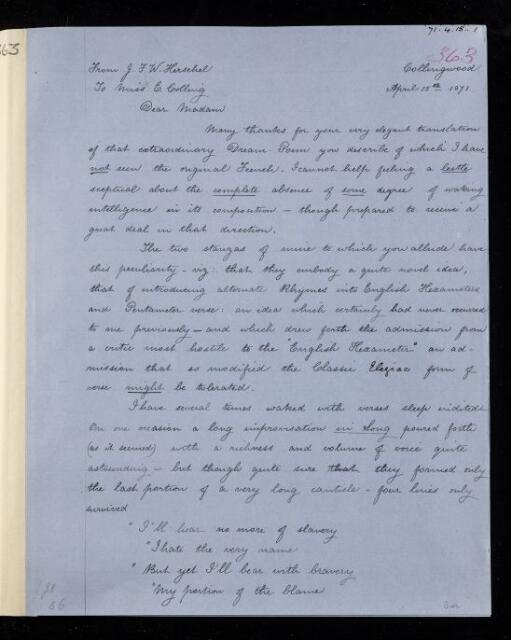 71.4.15.1
363
363
From J. F. W. Herschel
Collingwood
To Miss E. Colling
April 15th 1871
Dear Madam
Many thanks for your very elegant translation
of that extraordinary Dream-Poem you describe of which I have
not seen the original French. I cannot help feeling a little
sceptical about the complete absence of some degree of waking
intelligence in its composition – though prepared to receive a
great deal in that direction.
The two stanzas of mine to which you allude have
this peculiarity – viz: that they embody a quite novel idea,
that of introducing alternate Rhymes into English Hexameters
and Pentameter verse: an idea which certainly had never occurred
to me previously – and which drew forth the admission from
a critic most hostile to the "English Hexameter" an ad-
mission that so modified the Classic Elegiac form of
verse might be tolerated.
I have several times waked with verses sleep indited.
On one occasion a long improvisation in Song poured forth
(as it seemed) with a richness and volume of voice quite
astounding – but though quite sure that they formed only
the last portion of a very long canticle – four lines only
survived
"I'll hear no more of slavery
"I hate the very name
"But yet I'll bear with bravery
"My portion of the blame
56